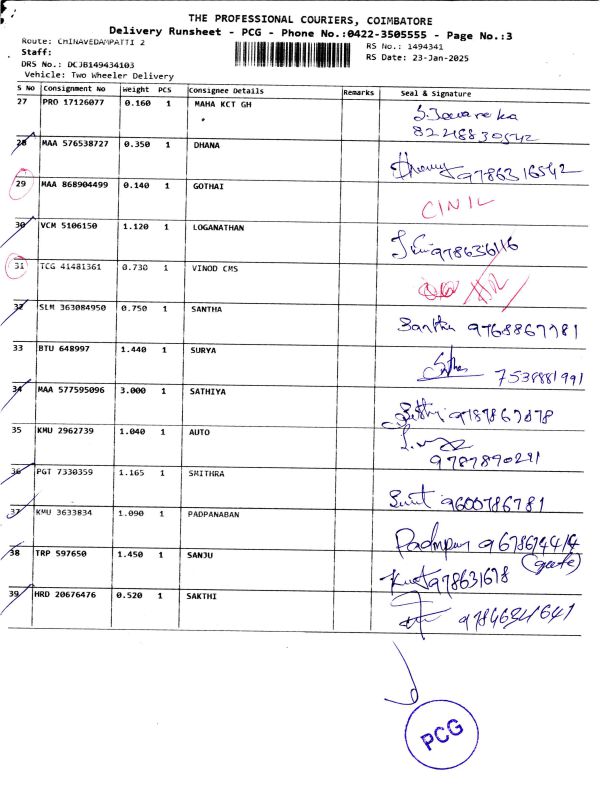 THE PROFESSIONAL COURIERS, COIMBATORE
Delivery Runsheet - PCG - Phone No.:0422-3505555 - Page No.:3
Route: CHINAVEDAMPATTI 2
RS No.: 1494341
Staff:
RS Date: 23-Jan-2025
DRS No.: DCJB149434103
Vehicle: Two Wheeler Delivery
S No Consignment No Weight PCS Consignee Details Remarks Seal & Signature
27 PRO 17126077 0.160 1 MAHA KCT GH
8248830542
28 MAA 576538727 0.350 1 DHANA
9786316542
29 MAA 868904499 0.140 1 GOTHAI
CINIL
30 VCM 5106150 1.120 1 LOGANATHAN
978636116
31 TCG 41481361 0.730 1 VINOD CMS
32 SLM 363084950 0.750 1 SANTHA
Santha 9768867781
33 BTU 648997 1.440 1 SURYA
7538881991
34 MAA 577595096 3.000 1 SATHIYA
9787867878
35 KMU 2962739 1.040 1 AUTO
9787890291
36 PGT 7330359 1.165 1 SMITHRA
Smit 9600786781
37 KMU 3633834 1.090 1 PADPANABAN
9678674414
38 TRP 597650 1.450 1 SANJU
(gate)
978631678
39 HRD 20676476 0.520 1 SAKTHI
9784634641
PCG